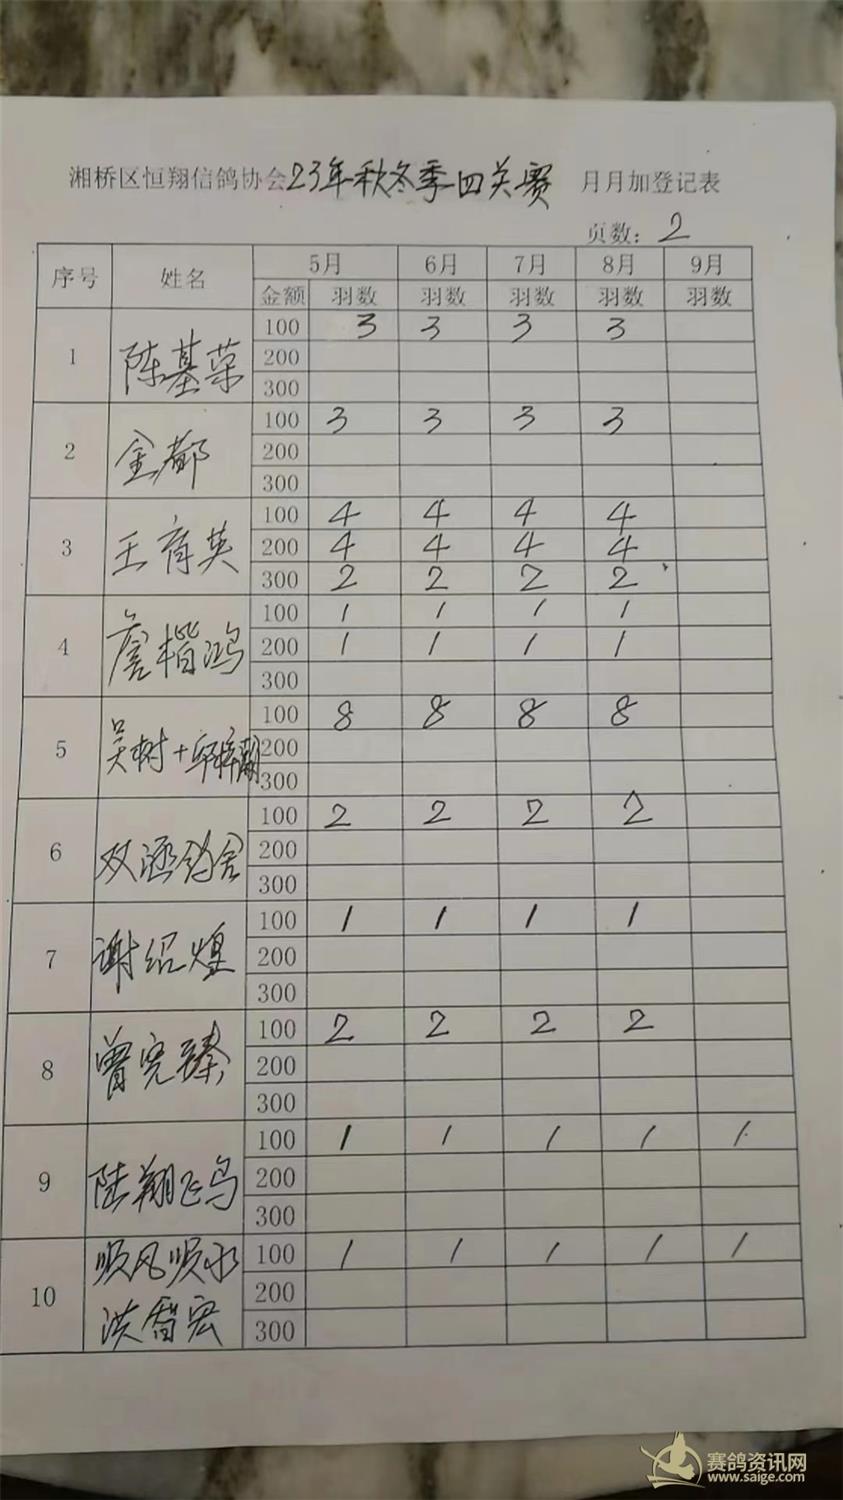 湘桥区恒翔信鸽协会23年秋冬季四关赛 月月加登记表
页数: 2
序号 姓名 5月 6月 7月 8月 9月
金额 羽数 羽数 羽数 羽数 羽数
1 陈基荣 100 3 3 3 3
200
300
2 金都 100 3 3 3 3
200
300
3 王育英 100 4 4 4 4
200 4 4 4 4
300 2 2 2 2
4 詹楷鸿 100 1 1 1 1
200 1 1 1 1
300
5 吴树+ 100 8 8 8 8
200
300
6 双涵鸽舍 100 2 2 2 2
200
300
7 谢绍煌 100 1 1 1 1
200
300
8 曾宪臻 100 2 2 2 2
200
300
9 陆翔飞鸟 100 1 1 1 1 1
200
300
10 顺风顺水 100 1 1 1 1 1
洪智宏 200
300
赛鸽资讯网
www.saige.com